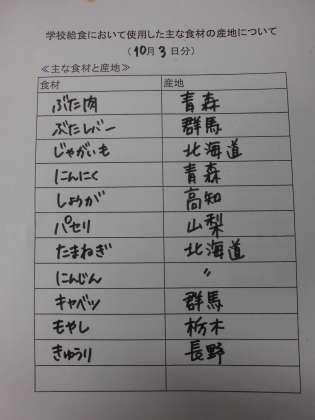 学校給食において使用した主な食材の産地について
(10月3日分)
≪主な食材と産地≫
食材 産地
ぶた肉 青森
ぶたレバー 群馬
じゃがいも 北海道
にんにく 青森
しょうが 高知
パセリ 山梨
たまねぎ 北海道
にんじん 〃
キャベツ 群馬
もやし 栃木
きゅうり 長野